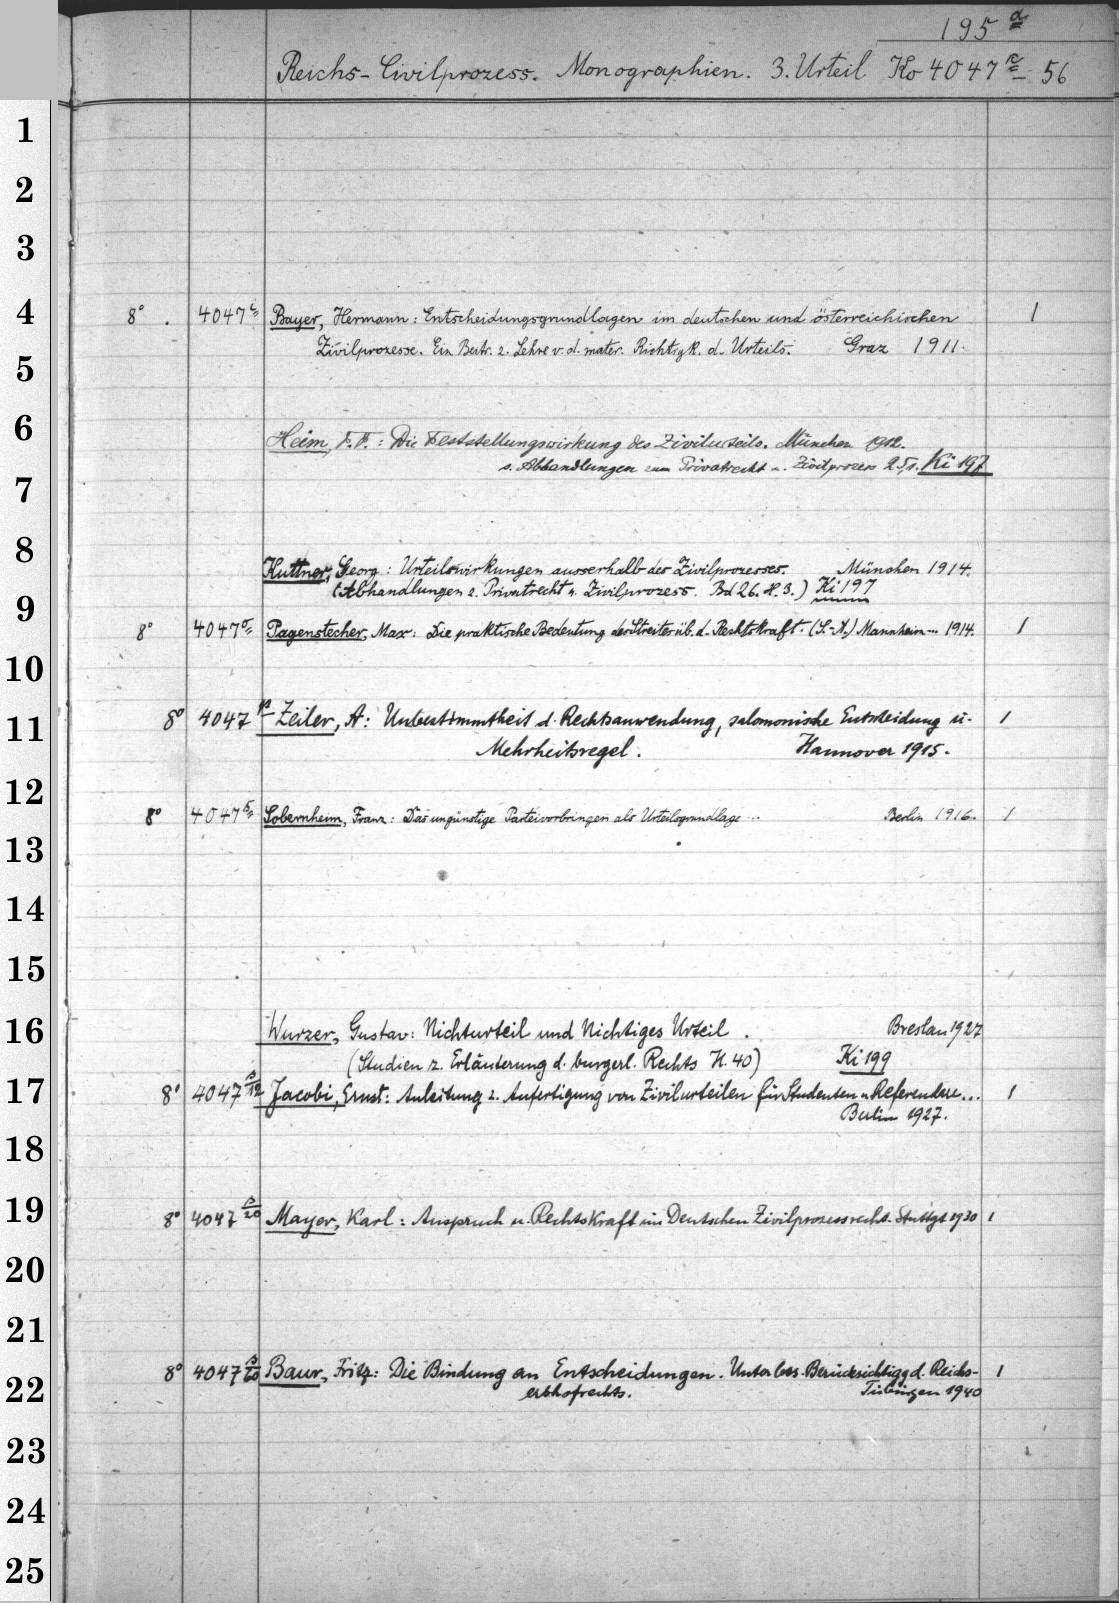 195 α
Reichs-Civilprozess. Monographien. 3. Urteil Ko 4047 56
1
2
3
4
8° 4047 Bayer, Hermann: Entscheidungsgrundlagen im deutschen und österreichischen 1
Zivilprozesse. Ein Beitr. z. Lehre v. d. mater. Richtigk. d. Urteils. Graz 1911.
5
6
Heim, F. F.: Die Feststellungswirkung des Zivilurteils. München 1912.
s. Abhandlungen zum Privatrecht u. Zivilprozess 25,1. Ki 197
7
8
Kuttner, Georg: Urteilswirkungen ausserhalb des Zivilprozesses. München 1914.
(Abhandlungen z. Privatrecht u. Zivilprozess. Bd 26. H. 3.) Ki 197
9
8° 4047 Pagenstecher, Max: Die praktische Bedeutung des Streites üb. d. Rechtskraft. (S.-A.) Mannheim... 1914. 1
10
11
8° 4047 Zeiler, A: Unbestimmtheit d. Rechtsanwendung, salomonische Entscheidung u. 1
Mehrheitsregel. Hannover 1915.
12
8° 4047 Sobernheim, Franz: Das ungünstige Parteivorbringen als Urteilsgrundlage ... Berlin 1916. 1
13
14
15
16
Wurzer, Gustav: Nichturteil und Nichtiges Urteil. Breslau 1927
(Studien z. Erläuterung d. bürgerl. Rechts H. 40) Ki 199
17
8° 4047 β/12 Jacobi, Ernst: Anleitung z. Anfertigung von Zivilurteilen für Studenten u. Referendare... 1
Berlin 1927.
18
19
8° 4047 β/20 Mayer, Karl: Anspruch u. Rechtskraft im Deutschen Zivilprozessrecht. Stuttgt 1930 1
20
21
22
8° 4047 β/60 Baur, Fritz: Die Bindung an Entscheidungen. Unter bes. Berücksichtigg d. Reichs- 1
erbhofrechts. Tübingen 1940
23
24
25